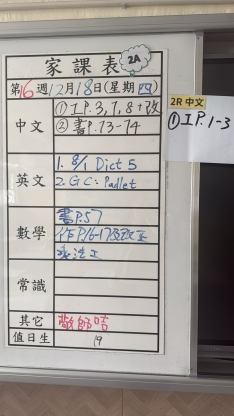 家課表 2A
第16週12月18日(星期四)
中文
①工P.3,7,8+改
②書P.73-74
英文
1. 8/1 Dict 5
2. GC: Padlet
數學
書P.57
作P.16-17及改正
常識
其它
敬師咭
值日生
19
2R 中文
①工P.1-3